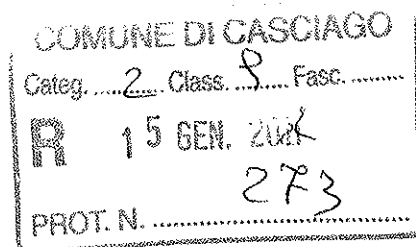 COMUNE DI CASCIAGO
Categ. 2 Class. 8 Fasc.
R 15 GEN.
273
PROT. N.